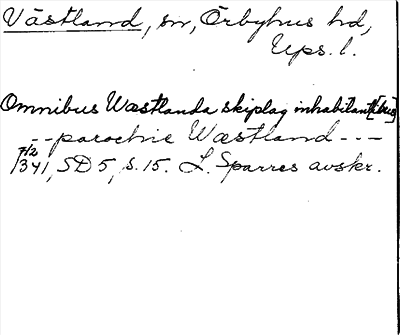 Västland, sn, Örbyhus hd,
Ups. l.
Omnibus Wæstlanda skiplag inhabitant[ibus]
-- parochie Wæstland ---
7/2
1341, SD 5, s. 15. L. Sparres avskr.